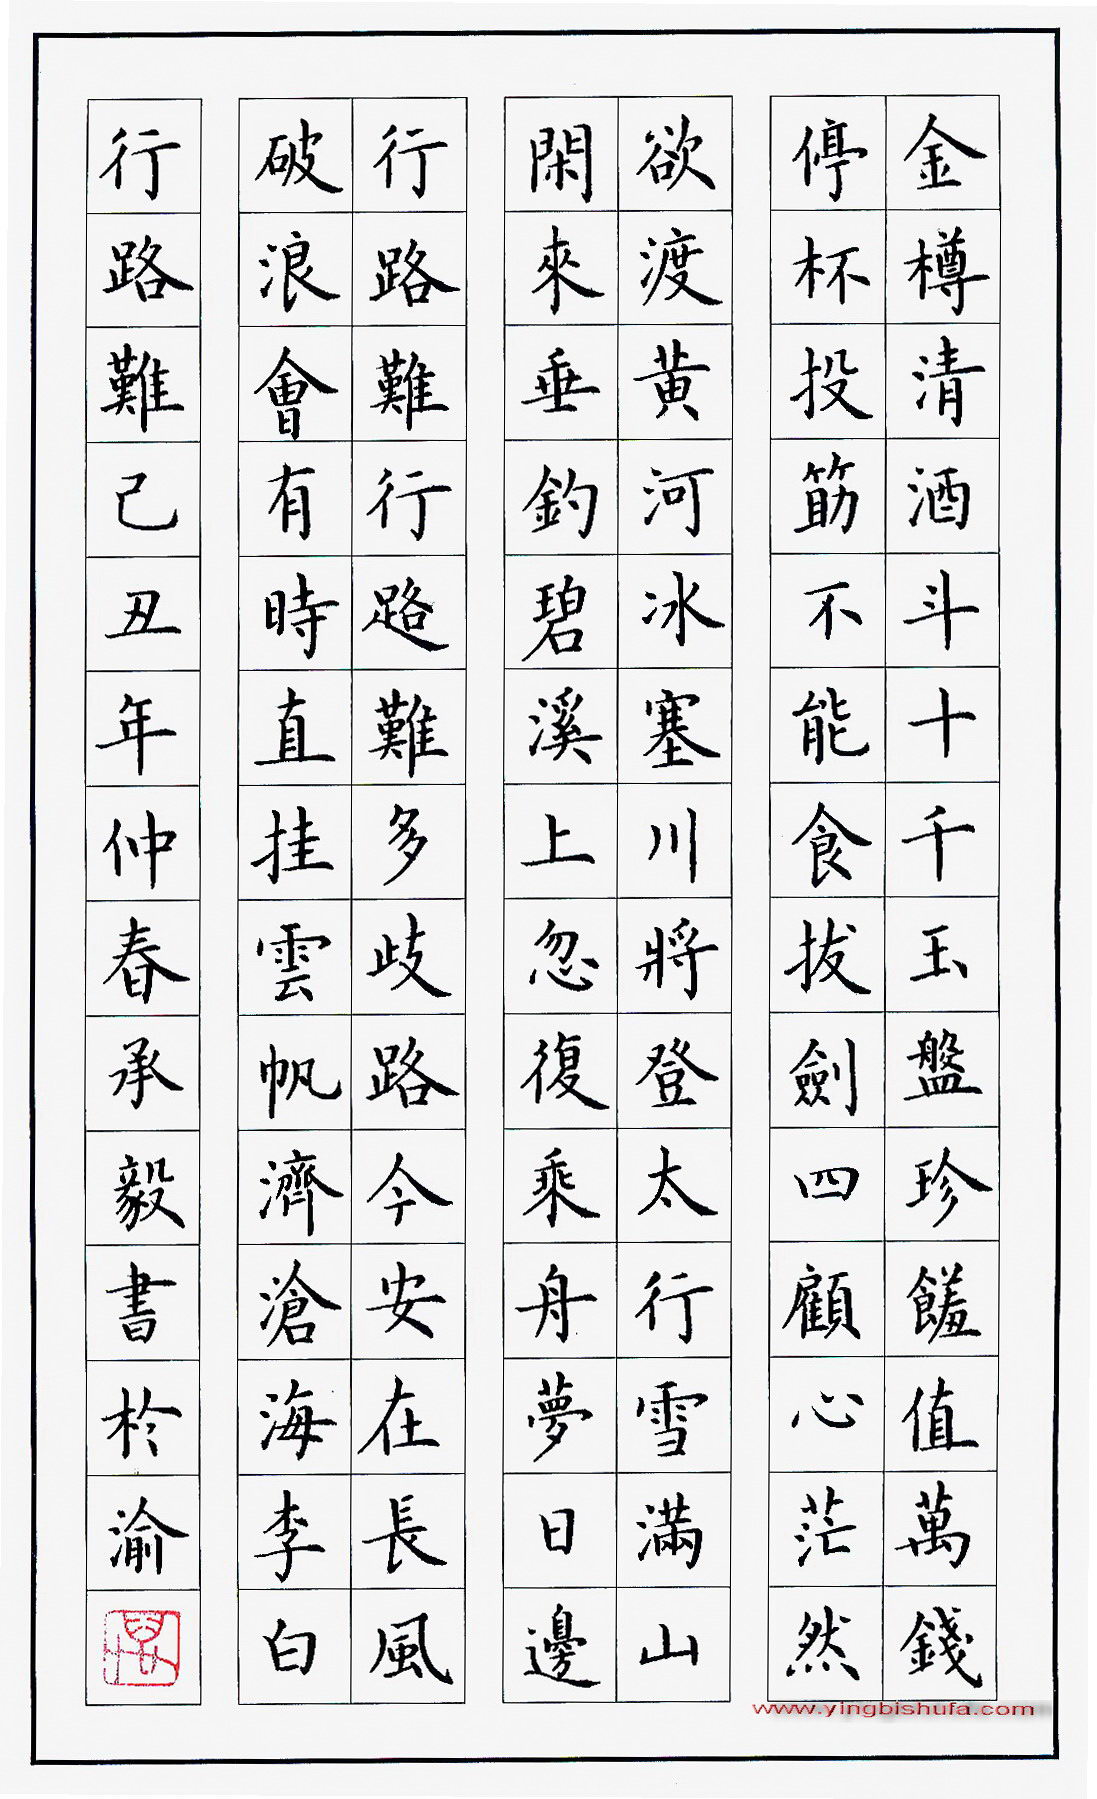 金樽清酒斗十千玉盤珍饈值萬錢
停杯投筯不能食拔劍四顧心茫然
欲渡黃河冰塞川將登太行雪滿山
閑來垂釣碧溪上忽復乘舟夢日邊
行路難行路難多歧路今安在長風
破浪會有時直挂雲帆濟滄海李白
行路難己丑年仲春承毅書於渝
www.yingbishufa.com